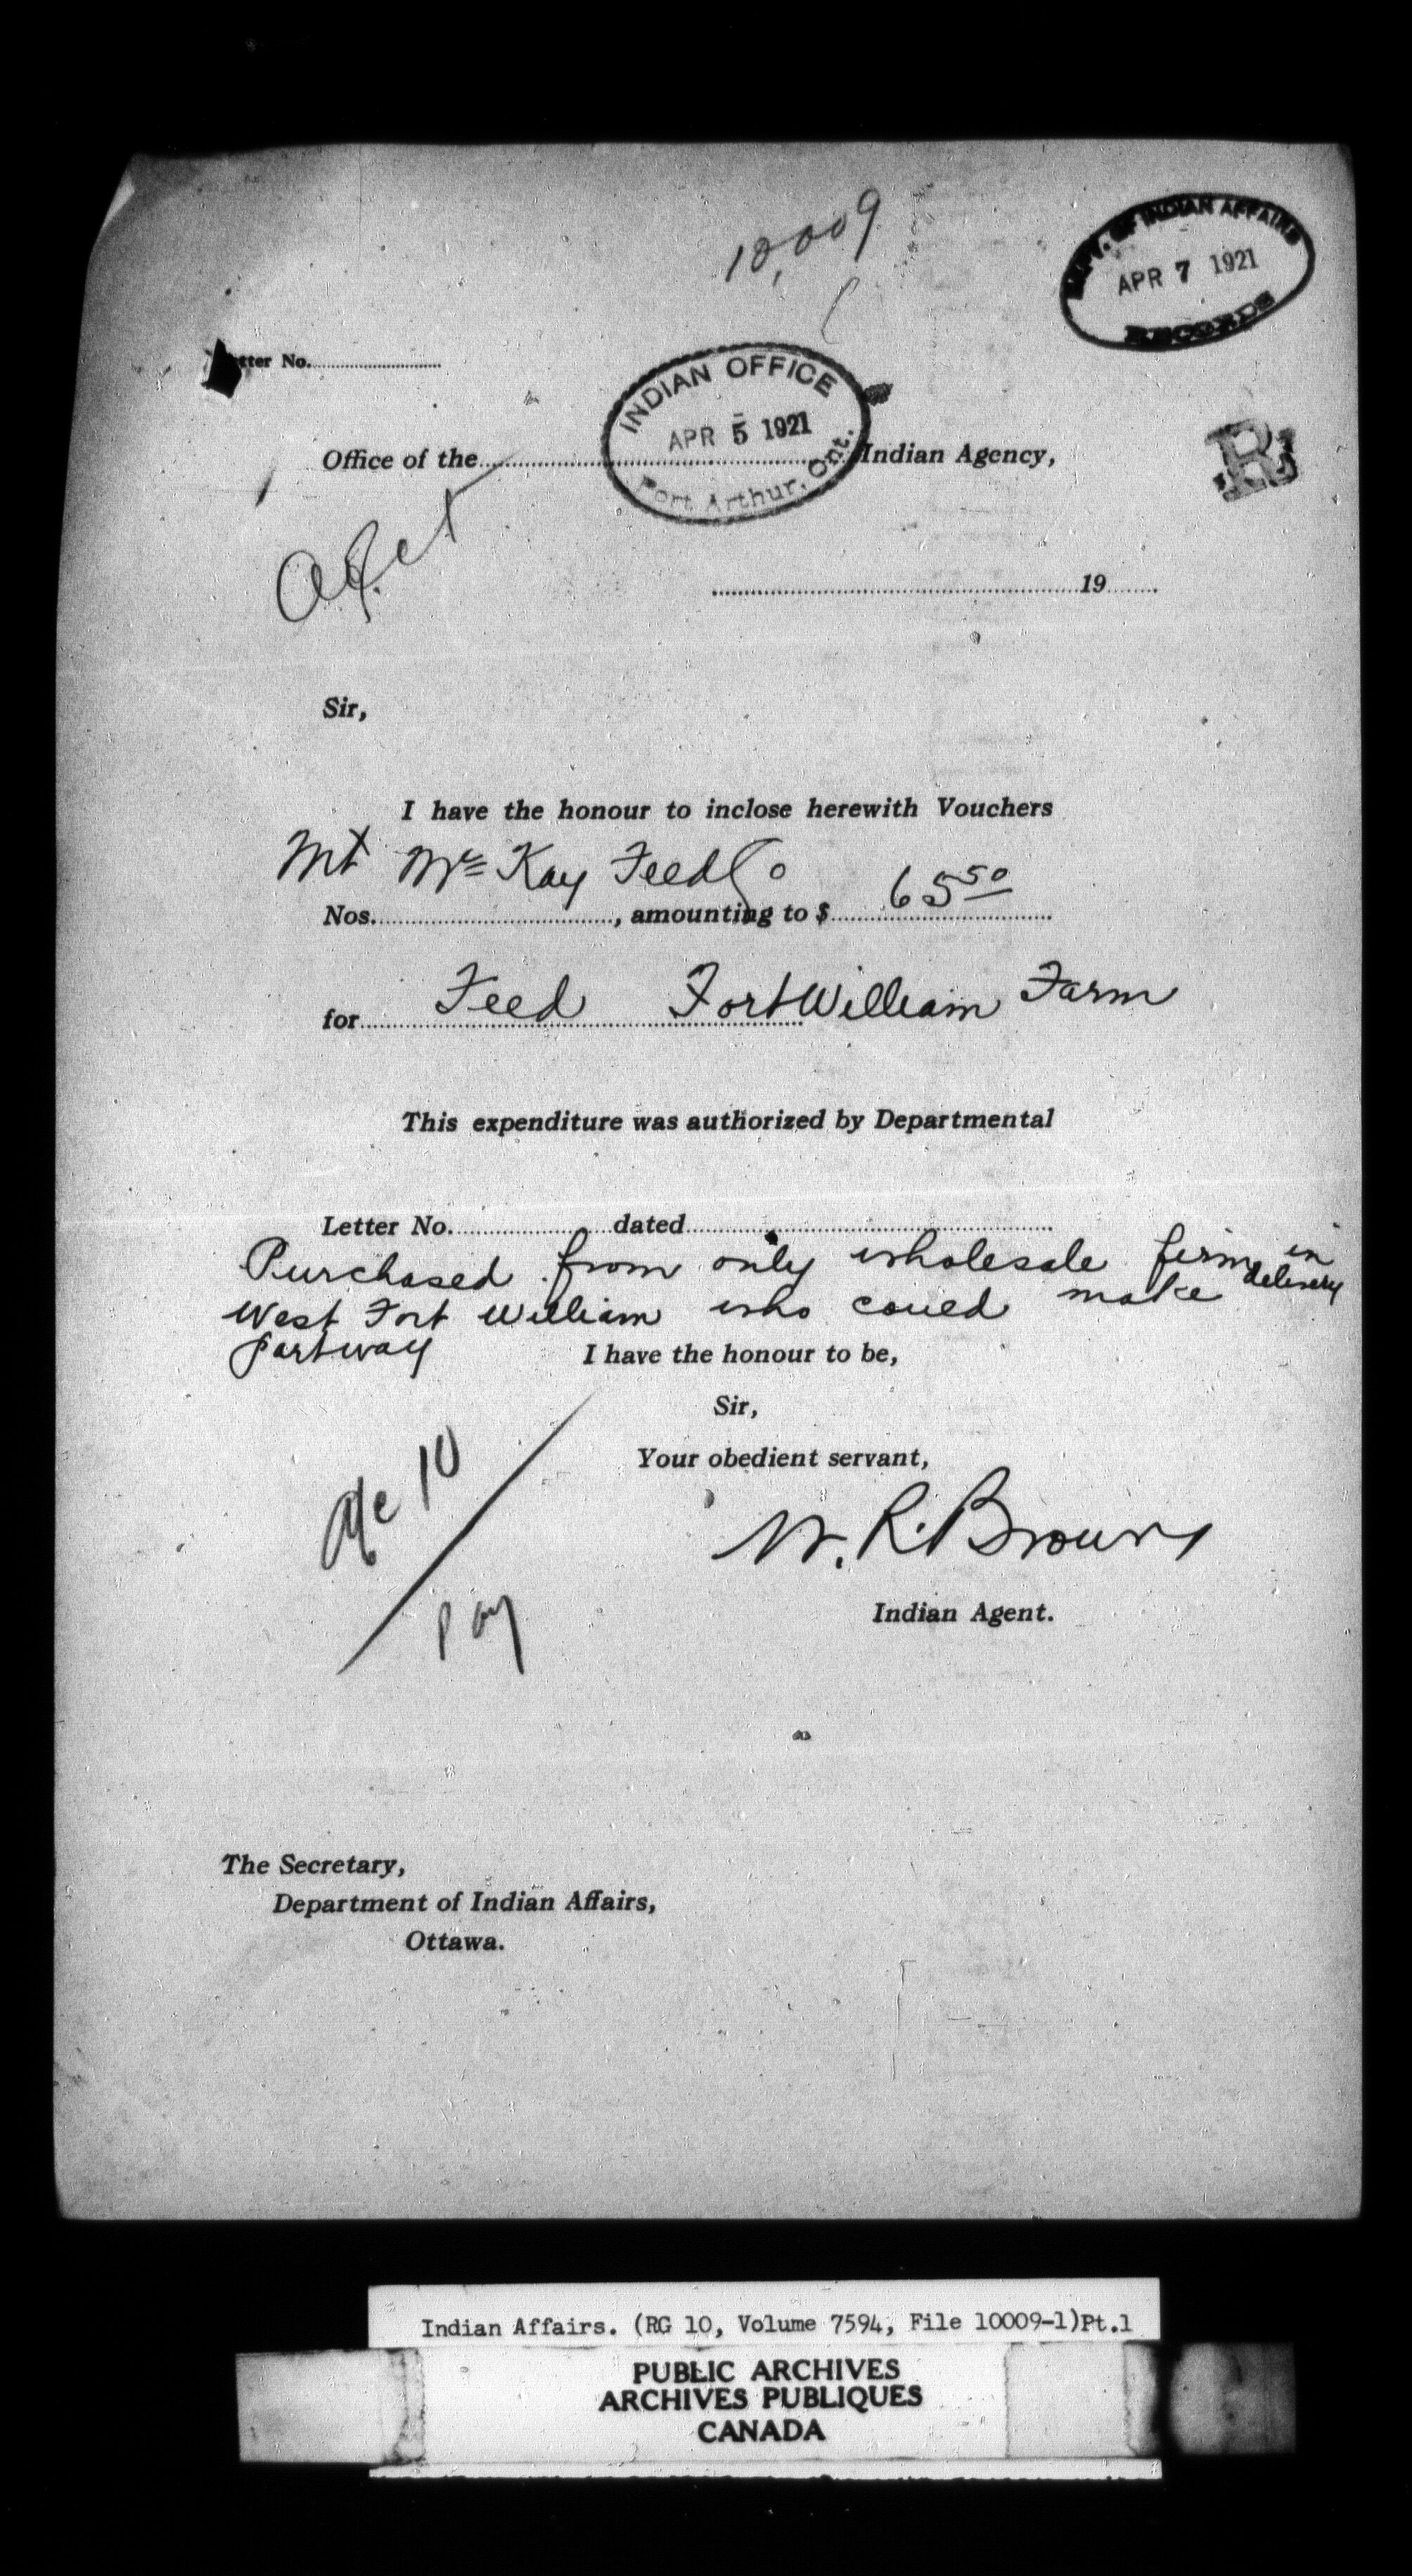 10,009
DEPT. OF INDIAN AFFAIRS
APR 7 1921
RECORDS
Letter No.
INDIAN OFFICE
APR 5 1921
Port Arthur, Ont.
Office of the Indian Agency,
R
19
Sir,
I have the honour to inclose herewith Vouchers
Mt McKay Feed Co
Nos. , amounting to $ 65 50
for Feed Fort William Farm
This expenditure was authorized by Departmental
Letter No. dated
Purchased from only wholesale firm in
West Fort William who could make delivery
partway
I have the honour to be,
Sir,
Your obedient servant,
W. R. Brown
Indian Agent.
a/c 10
Pay
The Secretary,
Department of Indian Affairs,
Ottawa.
Indian Affairs. (RG 10, Volume 7594, File 10009-1)Pt.1
PUBLIC ARCHIVES
ARCHIVES PUBLIQUES
CANADA